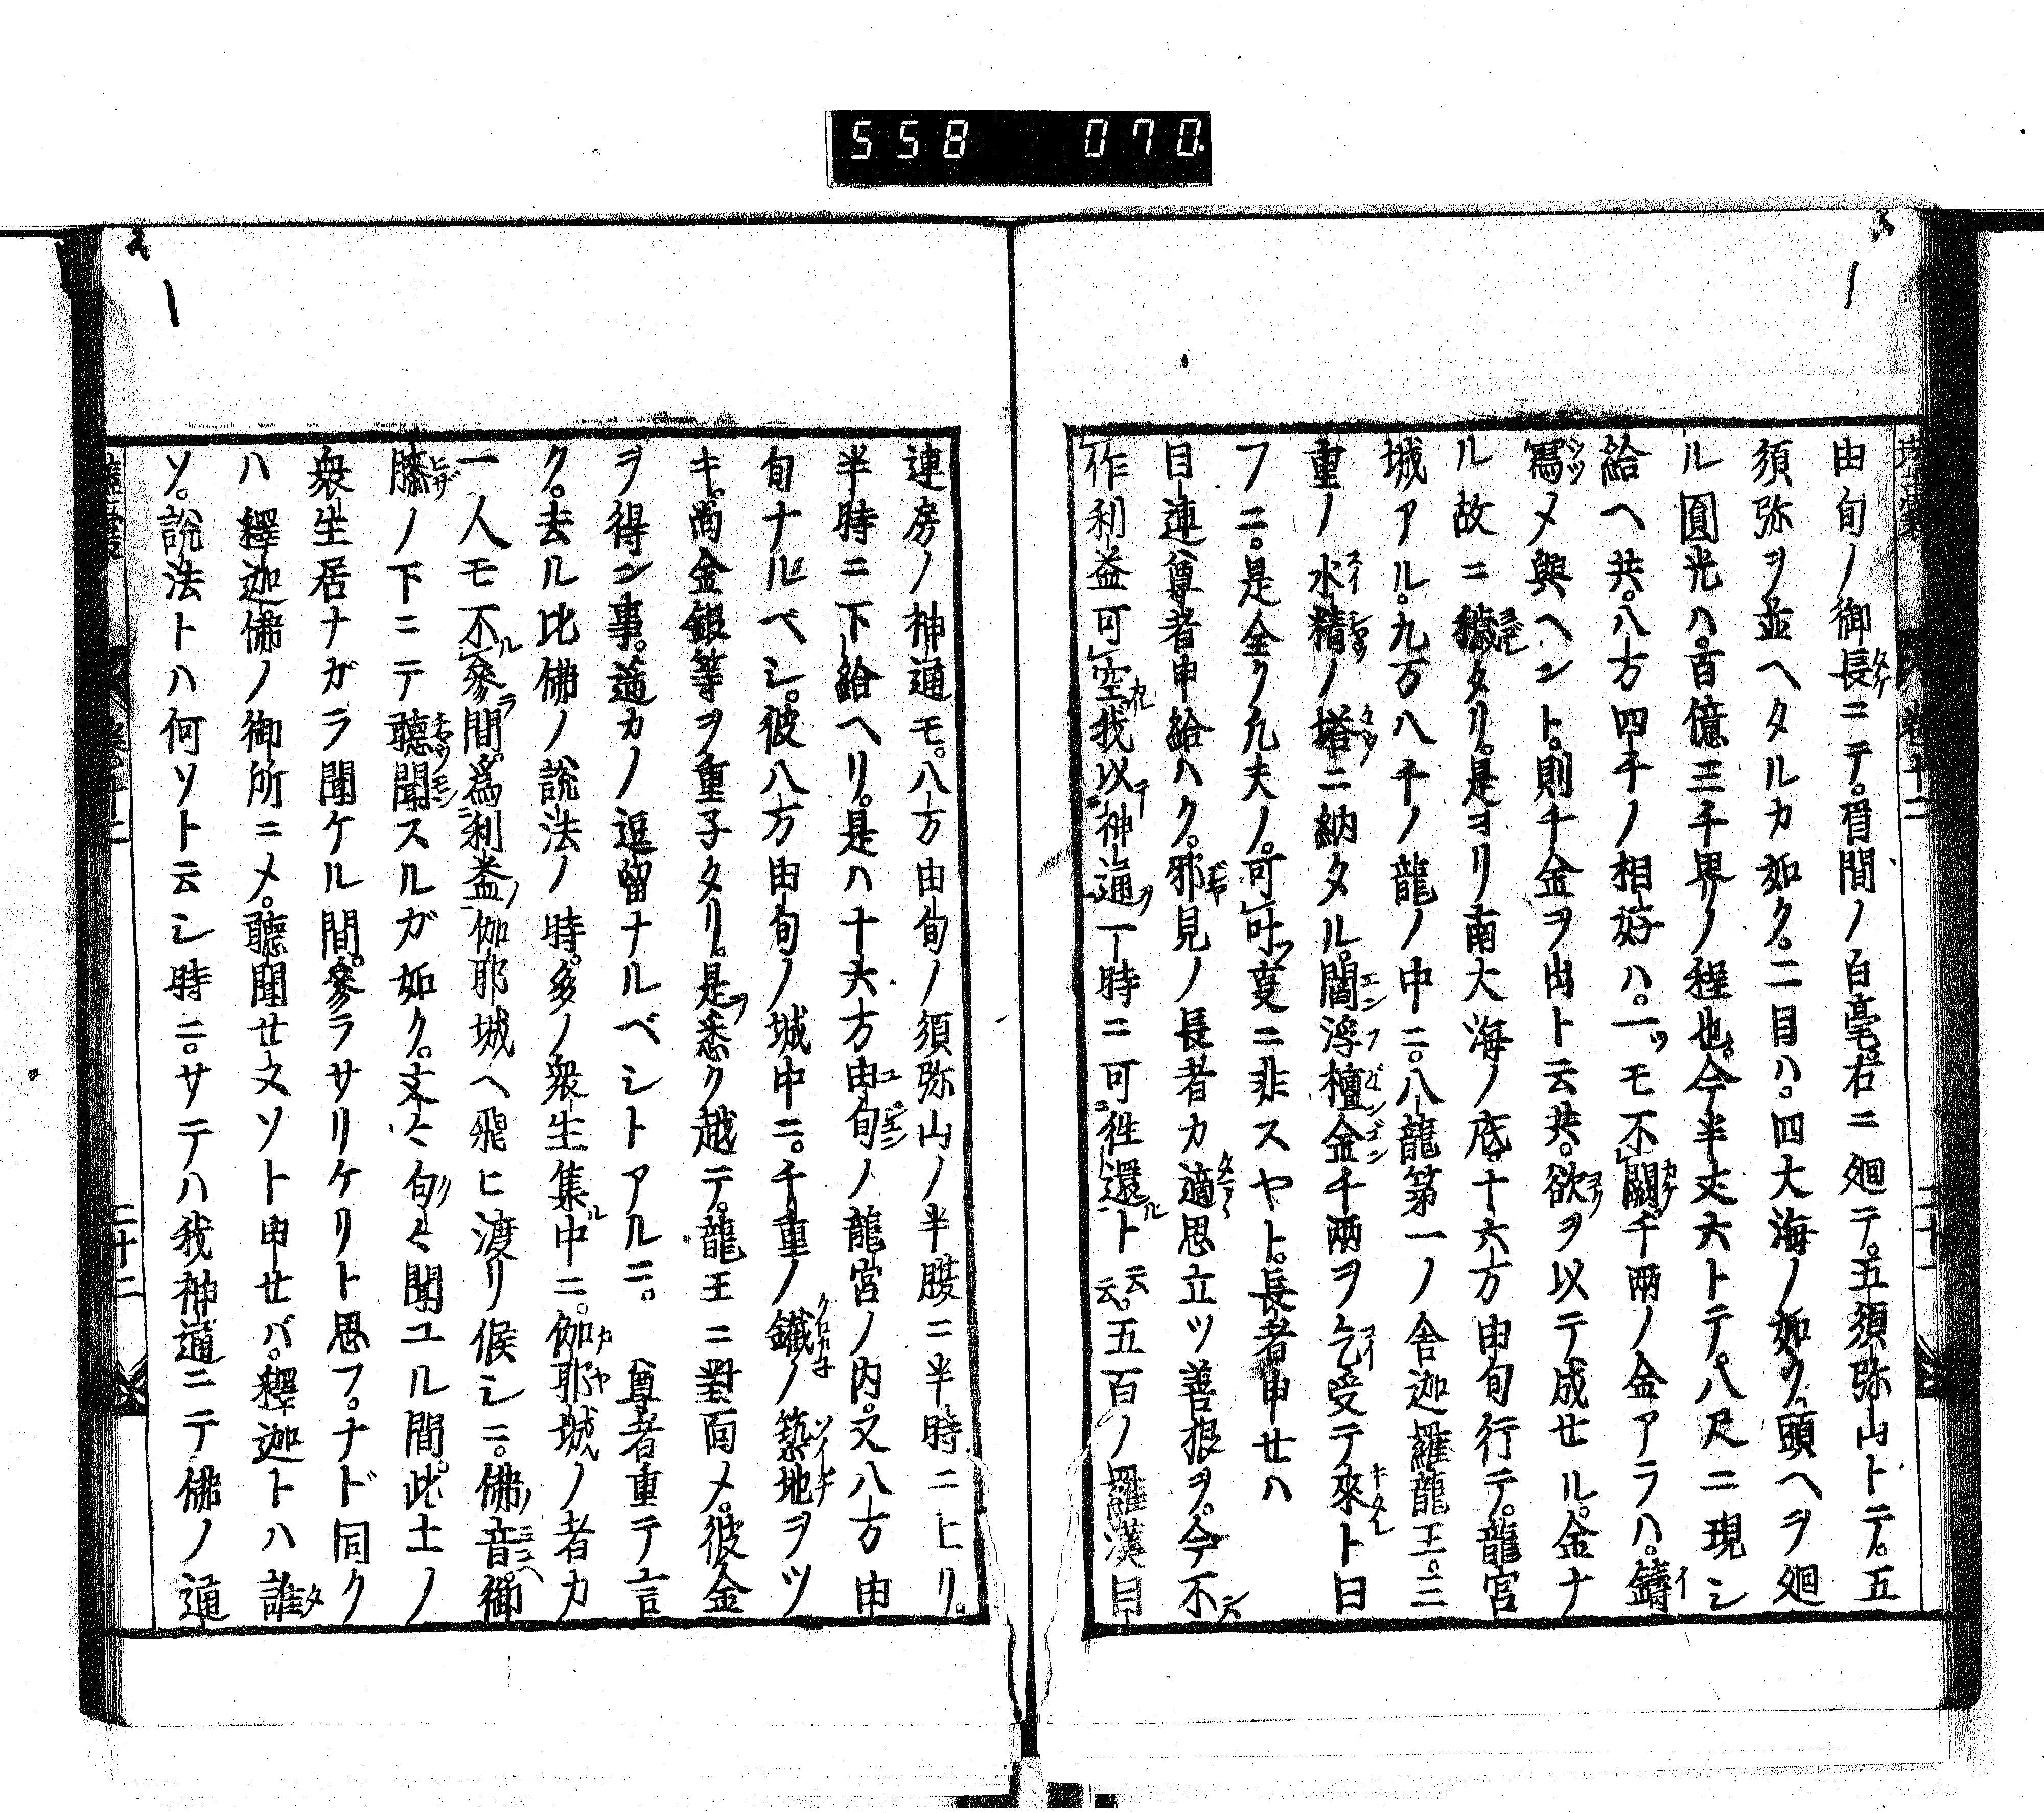 558 070.
由旬ノ御長ニテ。眉間ノ白毫右ニ廻テ。五須弥山トテ。五
須弥ヲ並ヘタルカ如ク。二目ハ。四大海ノ如ク。頭ヘヲ廻
ル圓光ハ。百億三千界ノ程也。今半丈六トテ。八尺ニ現シ
給ヘ共。八方四千ノ相好ハ。一ツモ不闕。千兩ノ金アラハ。鑄
寫メ與ヘント。則千金ヲ出ト云共。欲ヲ以テ成せル。金ナ
ル故ニ穢タリ。是ヨリ南大海ノ底。十六方由旬行テ。龍宮
城アル。九万八千ノ龍ノ中ニ。八龍第一ノ舎迦羅龍王。三
重ノ水精ノ塔ニ納タル。閻浮檀金千兩ヲ乞受テ來ト曰
フニ。是全ク凡夫ノ。可叶事ニ非スヤト。長者申せハ
目連尊者申給ハク。邪見ノ長者カ適思立ツ善根ヲ。今不
作利益可空。我以神通一時ニ可往還ト云云。五百ノ羅漢目
連房ノ神通モ。八方由旬ノ須弥山ノ半腹ニ半時ニ上リ。
半時ニ下給ヘリ。是ハ十六方由旬ノ龍宮ノ内。又八方由
旬ナルベシ。彼八方由旬ノ城中ニ。千重ノ鐵ノ築地ヲツ
キ。尚金銀等ヲ重子タリ。是悉ク越テ。龍王ニ對面メ。彼金
ヲ得ン事。遥カノ逗留ナルベシトアルニ。尊者重テ言
ク。去ル比佛ノ説法ノ時。多ノ衆生集中ニ。伽耶城ノ者カ
一人モ不參間。為利益伽耶城ヘ飛ヒ渡リ候シニ。佛音。御
膝ノ下ニテ聽聞スルガ如ク。文々句々聞ユル間。此土ノ
衆生居ナガラ聞ケル間。參ラサリケリト思フ。ナド同ク
ハ釋迦佛ノ御所ニメ。聽聞せヌソト申せバ。釋迦トハ誰
ソ。説法トハ何ソト云シ時ニ。サテハ我神通ニテ佛ノ通
卷十二
二十二